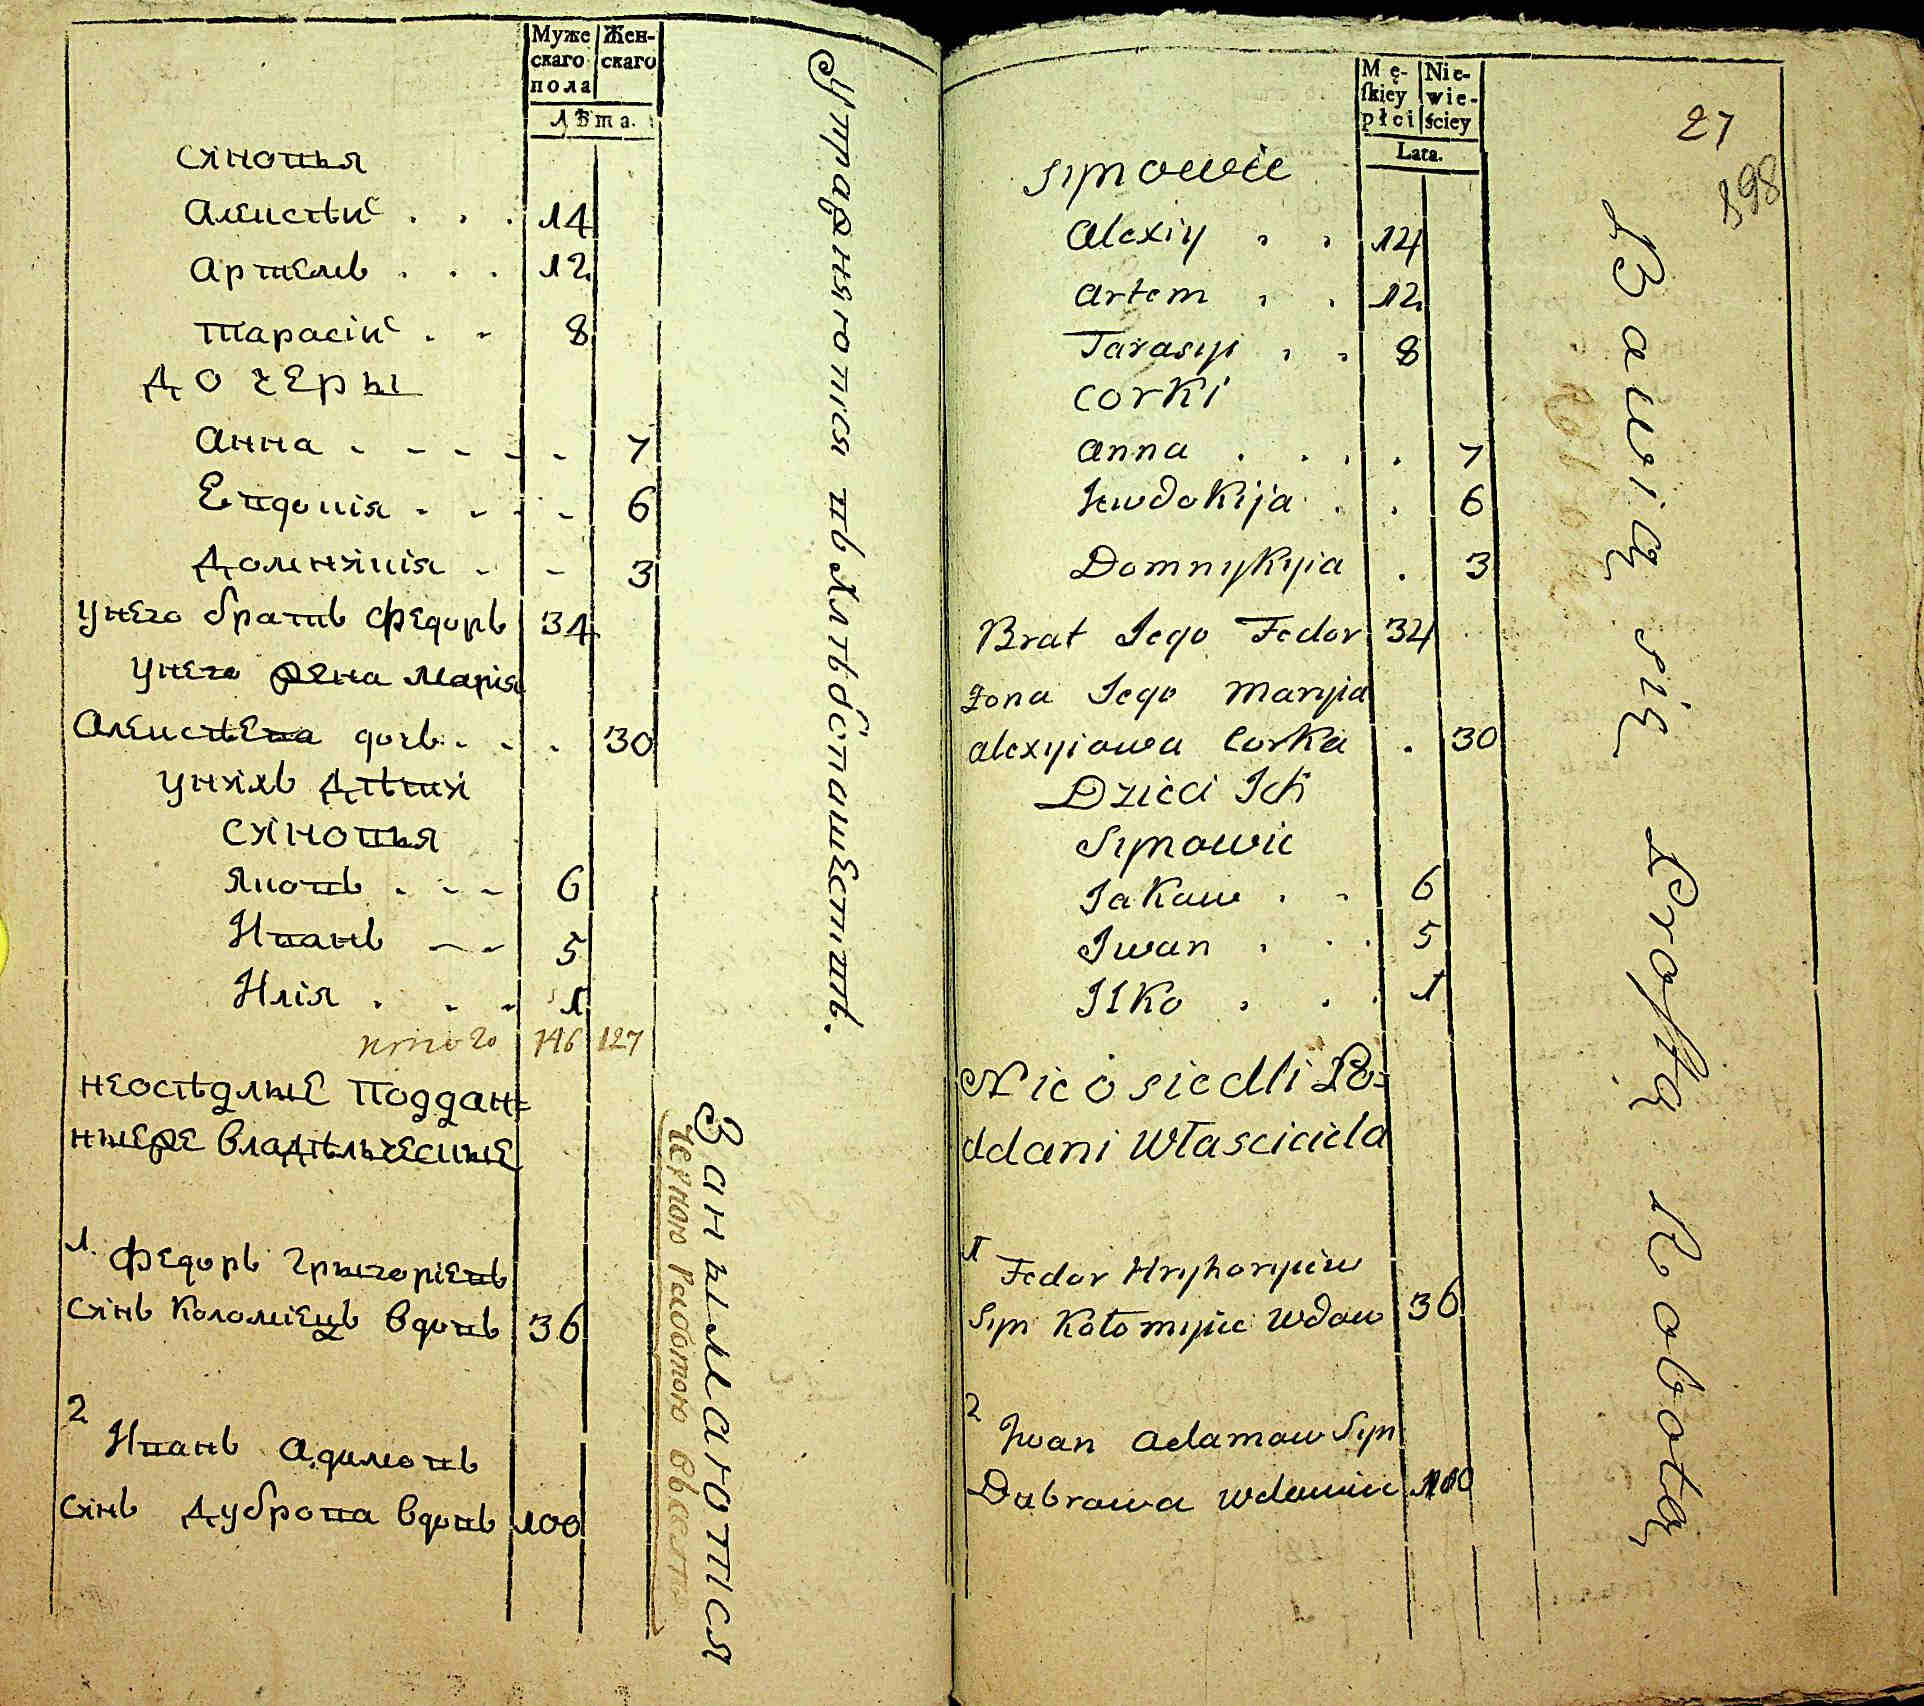 Муже
скаго
пола
Жен-
скаго
Лѣта.
сiновья
Алексѣй . . . 14
Артемъ . . . 12
Тарасiй . . 8
дочеры
Анна . - - - - - 7
Евдокiя . - - - 6
Домникiя . - 3
у него братъ Федоръ 34
у него жена Марiя
Алексѣева дочь . - . 30
у нихъ дѣти
сiновья
Яковъ . - - 6
Иванъ - - - 5
Илiя . . . 1
итого 146 127
неосѣдлые поддан=
ныеже владѣльческые
1. Федоръ Грыгорiевъ
сiнъ Коломiецъ вдовъ 36
2
Иванъ Адамовъ
сiнъ Дуброва вдовъ 100
Занымаются
черною работою
Mę-
skiey
płci
Nie-
wie-
ściey
Lata.
27
898
synowie
Alexiy . . 14
Artem . . 12
Tarasyi . . 8
corki
Anna . . . . 7
Jewdokija . . 6
Domnykyia . 3
Brat Jego Fedor 34
żona Jego Maryia
Alexyiowa Corka . 30
Dzieci Ich
Synowie
Jakow . . 6
Iwan . . . 5
Ilko . . . 1
Nie osiedli Po=
ddani Własciciela
1 Fedor Hryhoryiew
Syn Kołomyiec wdow 36
2 Iwan Adamow Syn
Dubrowa 100
Bawią się Prostą Robotą